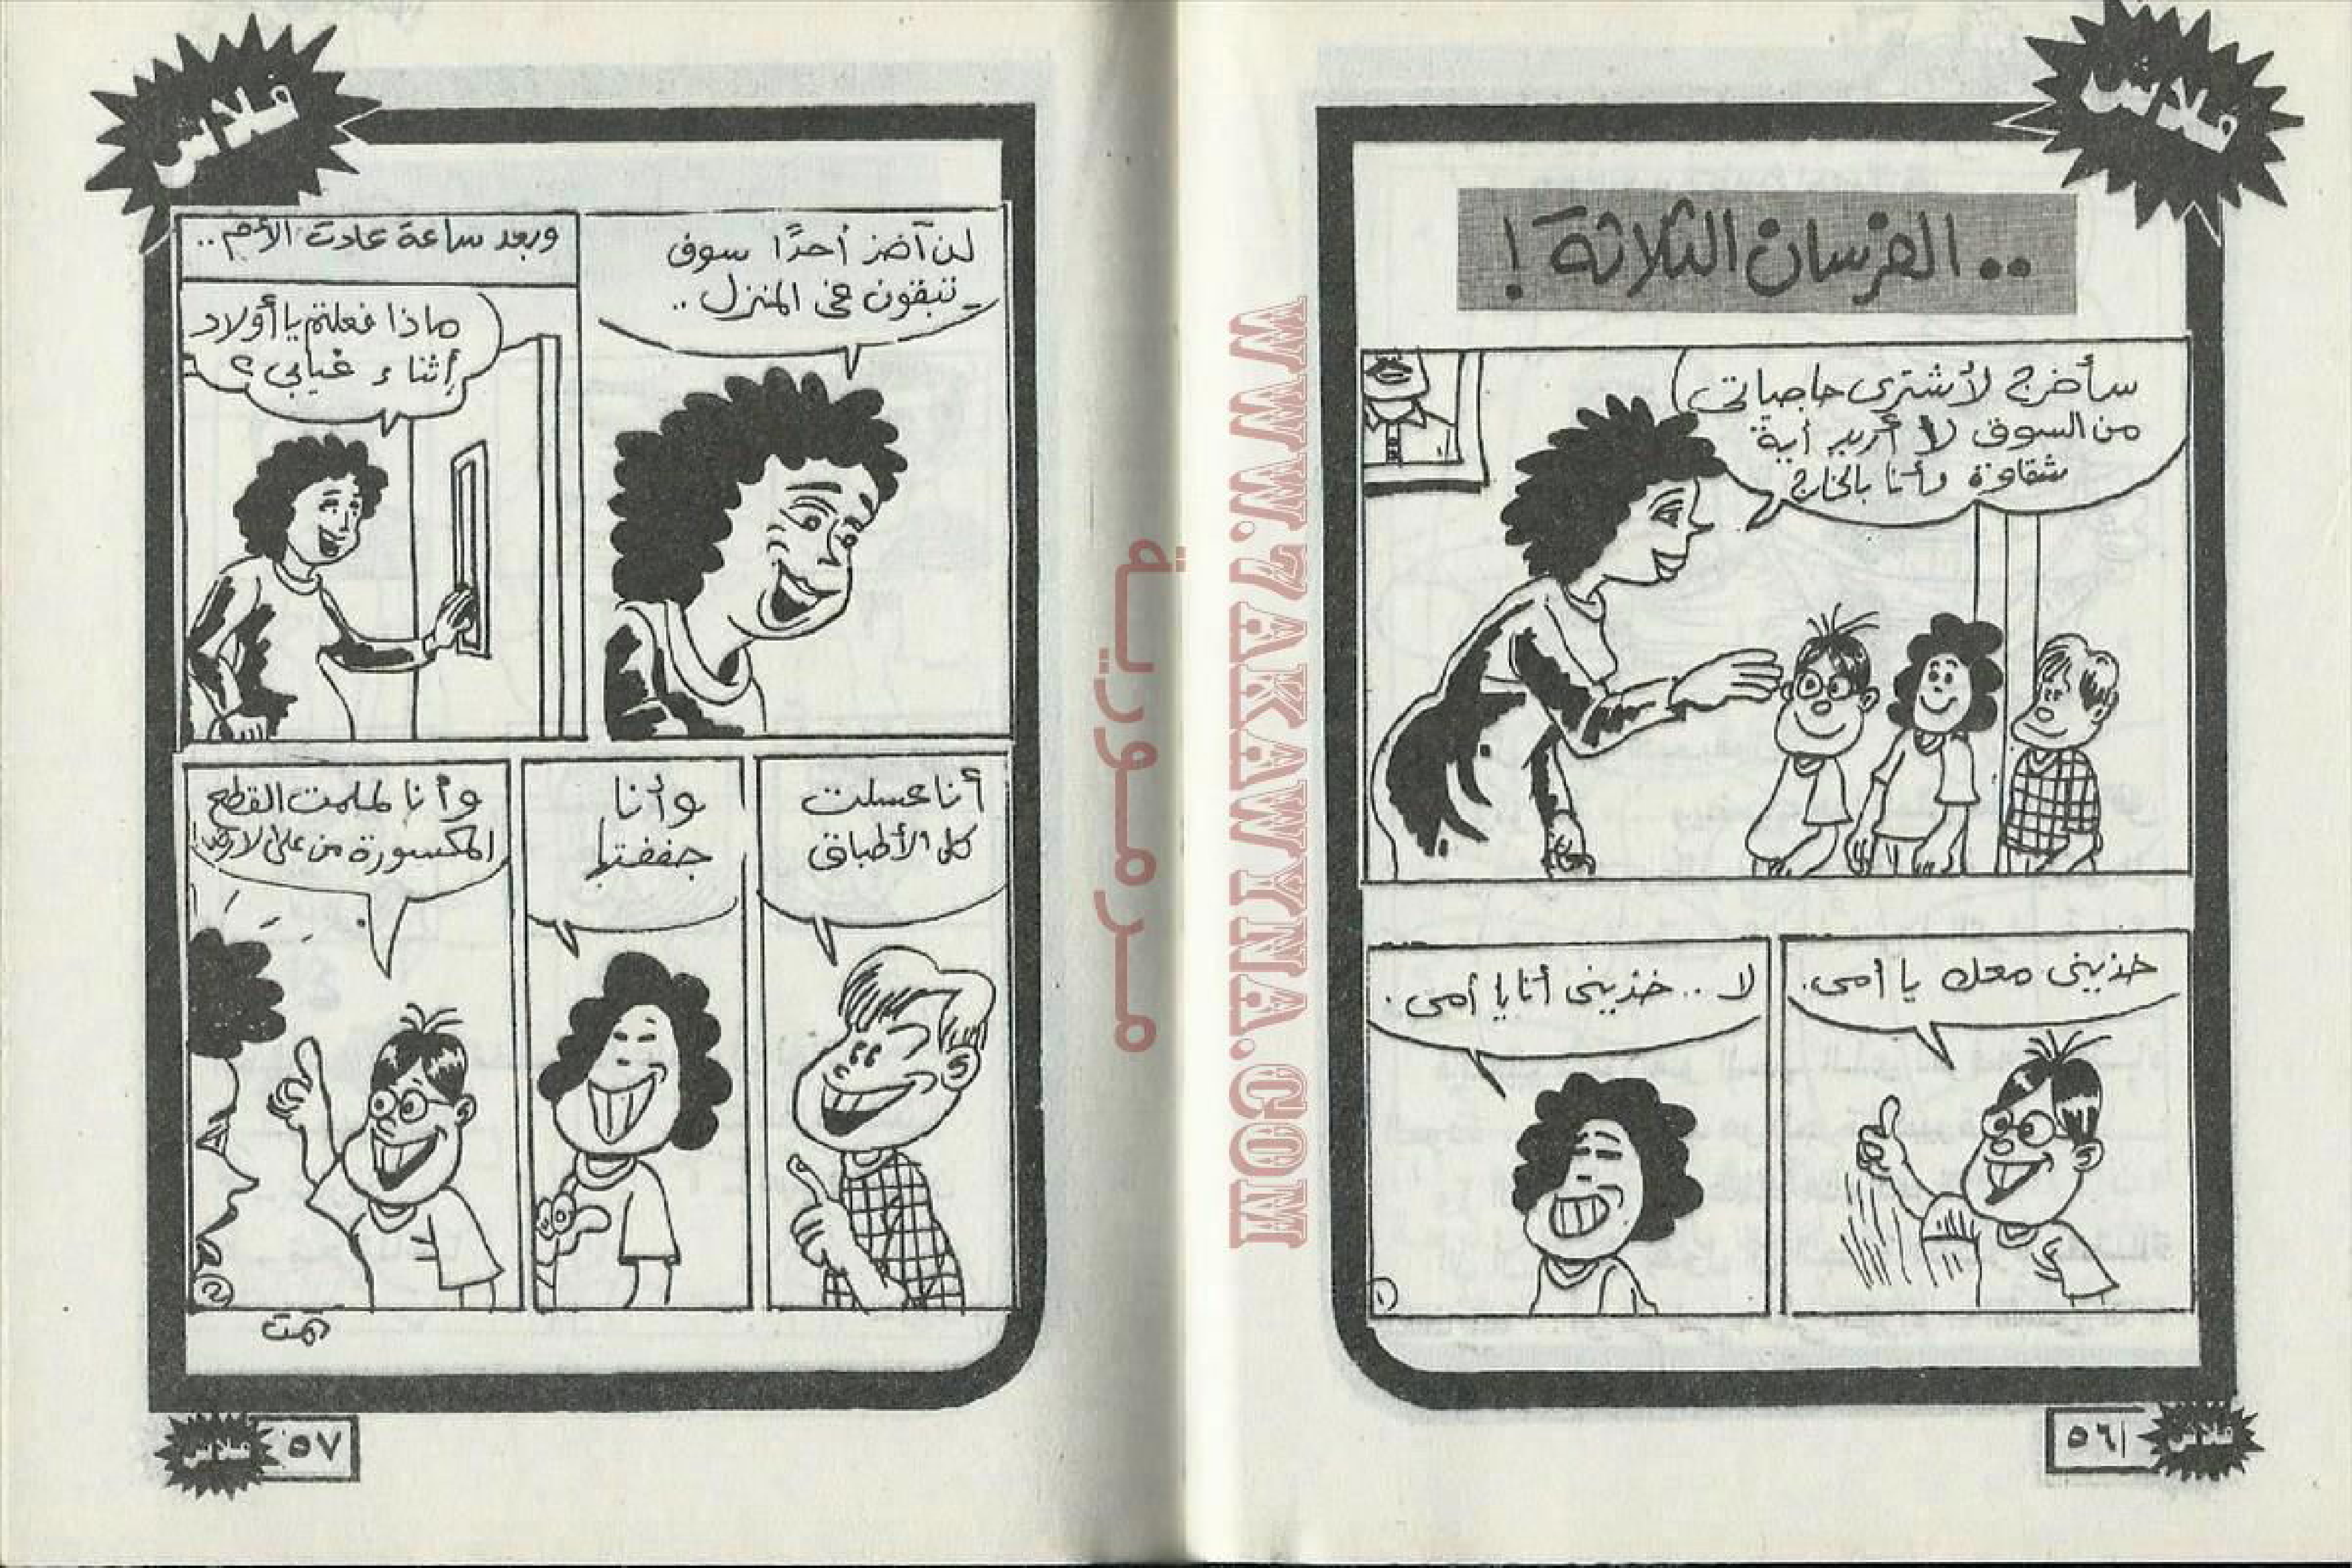 فلاش
.. الفرسان الثلاثة !
سأخرج لأشترى حاجياتى
من السوق لا أريد أية
شقاوة وأنا بالخارج
خذينى معك يا أمى.
لا .. خذينى أنا يا أمى .
١
فلاش
٥٦
فلاش
لن آخذ أحدًا سوف
تبقون فى المنزل ..
وبعد ساعة عادت الأم ..
ماذا فعلتم يا أولاد
أثناء غيابى ؟
أنا غسلت
كل الأطباق
وأنا
جففتها
وأنا لملمت القطع
المكسورة من على الأرض!
٢
تمت
فلاش
٥٧
WWW.7AKAWYNA.COM
مرمورية